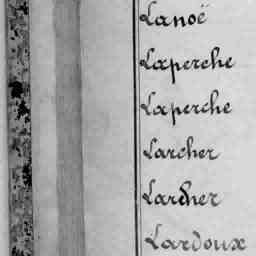 Lanoë
Laperche
Laperche
Larcher
Lardner
Lardoux